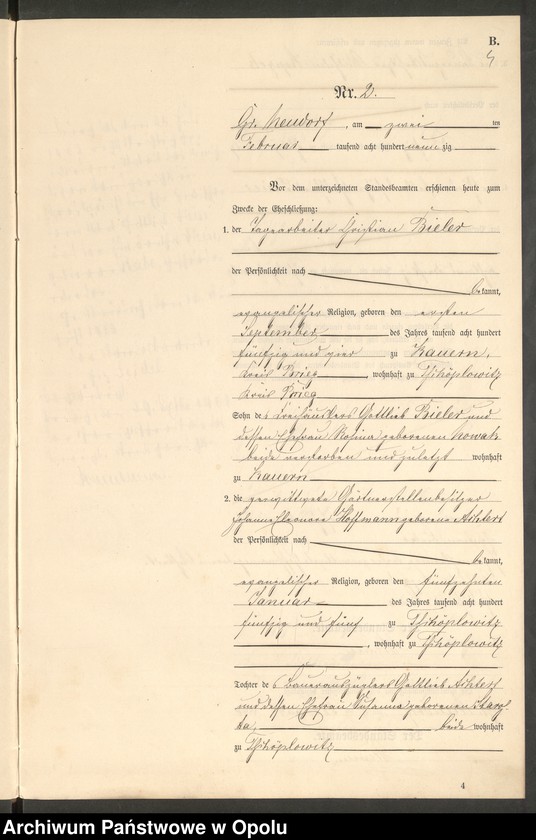 B.
4
Nr. 2.
Gr. Neudorf, am zwei ten
Februar tausend acht hundert neun zig
Vor dem unterzeichneten Standesbeamten erschienen heute zum
Zwecke der Eheschließung:
1. der Tagearbeiter Christian Bieler
der Persönlichkeit nach
be kannt,
evangelischer Religion, geboren den ersten
September des Jahres tausend acht hundert
fünfzig und vier zu Kauern,
Kreis Brieg, wohnhaft zu Tschöplowitz
Kreis Brieg
Sohn des Freihäuslers Gottlieb Bieler und
dessen Ehefrau Rosina geborenen Nowak
beide verstorben und zuletzt wohnhaft
zu Kauern
2. die verwittwete Gärtnerstellenbesitzer
Johanna Eleonore Hoffmann geborene
der Persönlichkeit nach
be kannt,
evangelischer Religion, geboren den fünfzehnten
Januar des Jahres tausend acht hundert
fünfzig und fünf zu Tschöplowitz
, wohnhaft zu Tschöplowitz
Tochter des Bauerauszüglers Gottlieb
und dessen Ehefrau Susanna geborenen
beide wohnhaft
zu Tschöplowitz
4
Archiwum Państwowe w Opolu